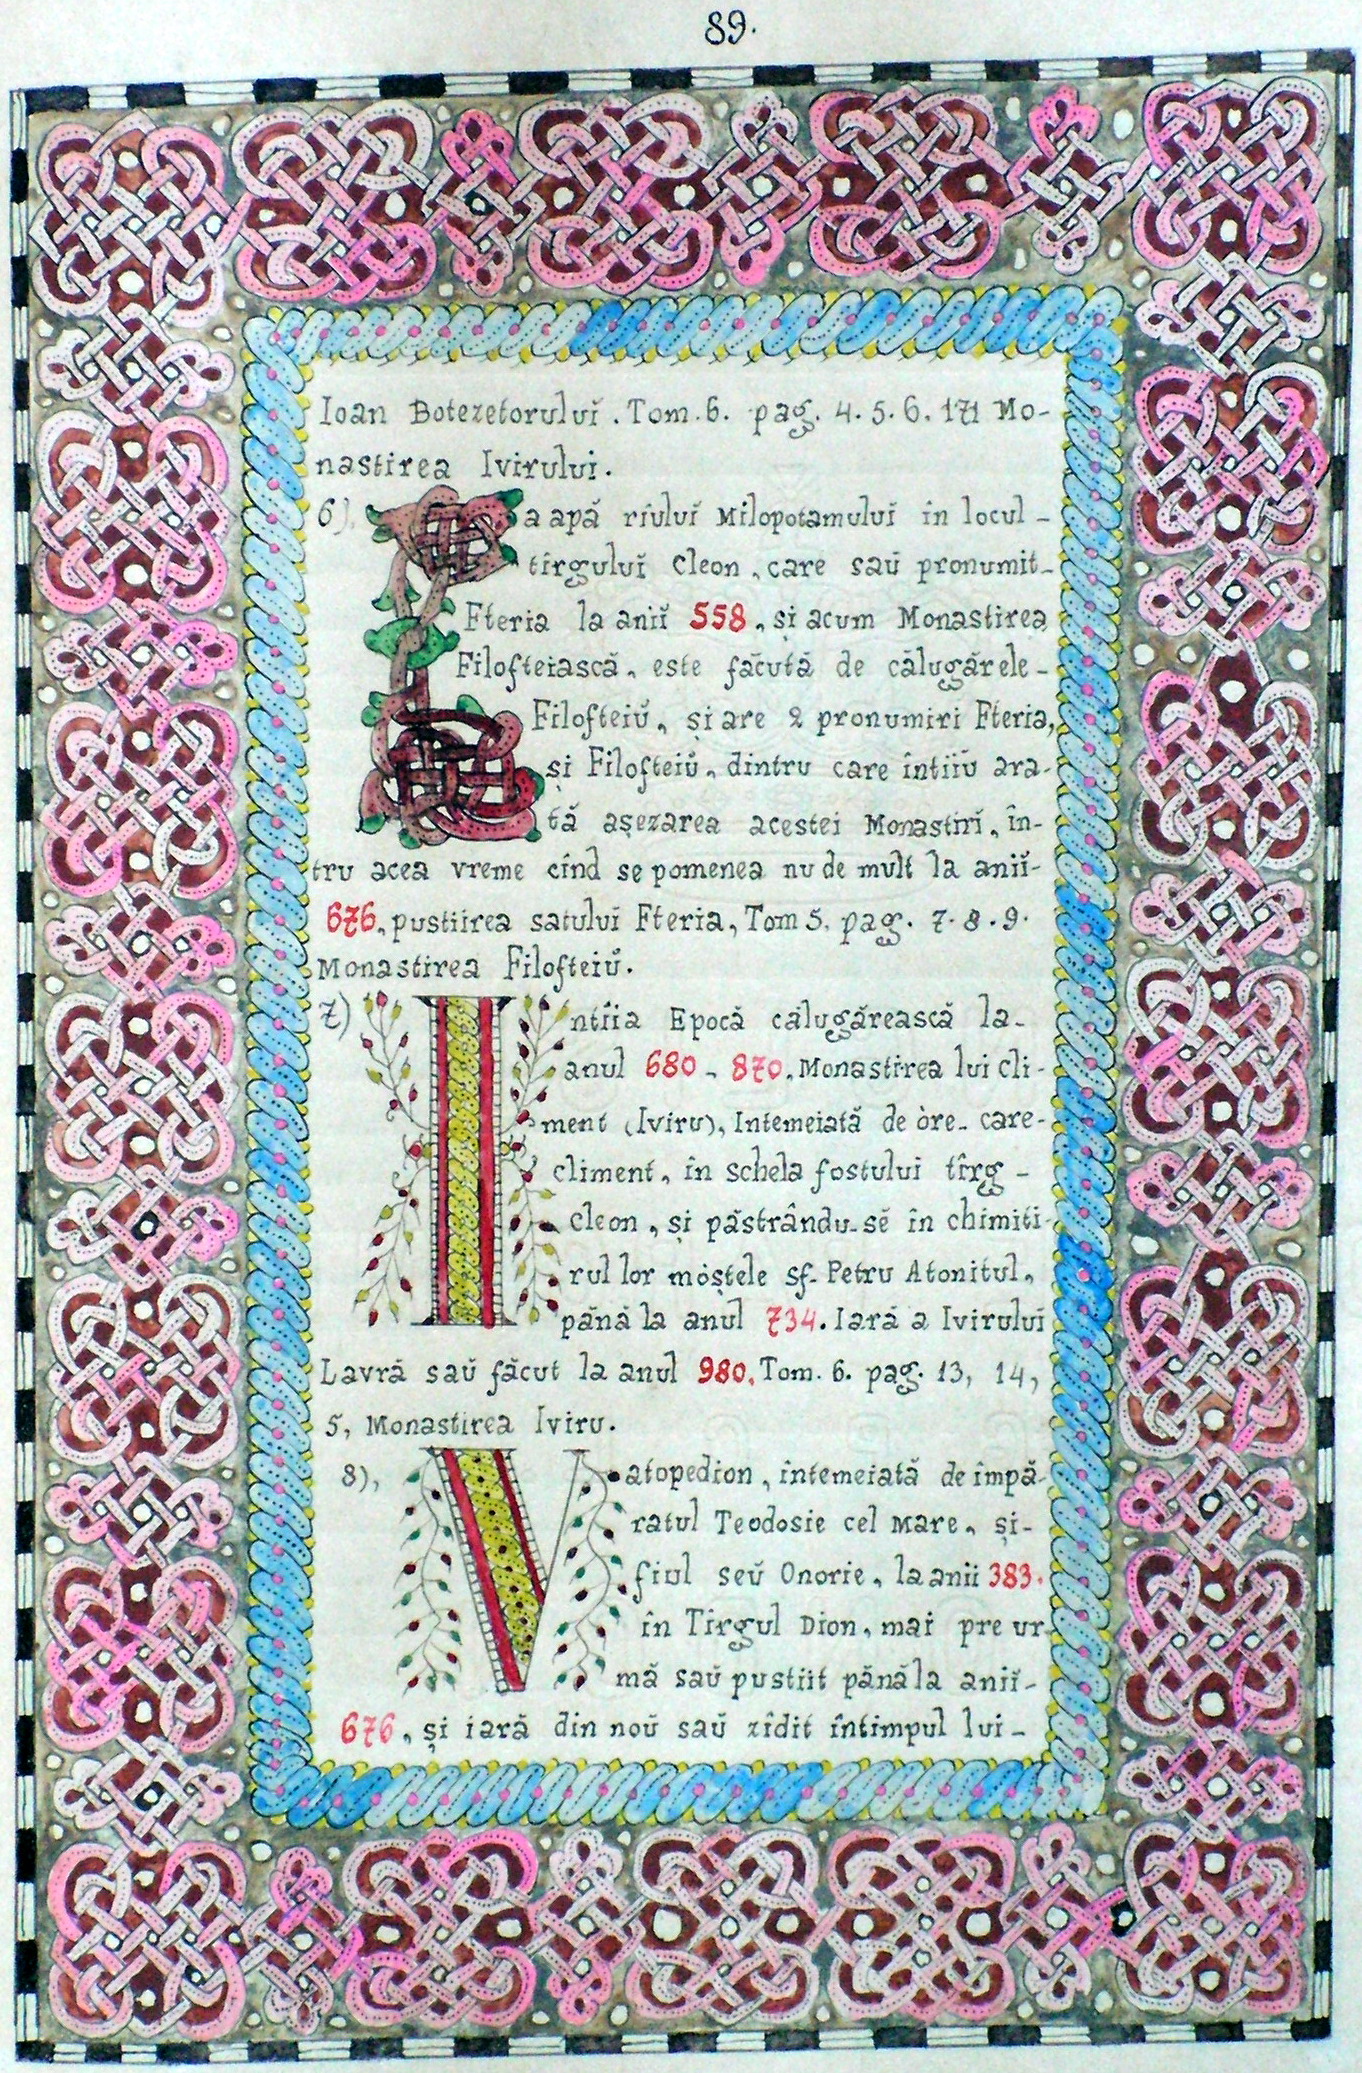 89.
Ioan Botezetoruluĭ. Tom. 6. pag. 4. 5. 6. 171 Mo-
nastirea Iviruluĭ.
6). La apă rîuluĭ Milopotamuluĭ în locul-
tîrguluĭ Cleon, care saŭ pronumit-
Fteria la aniĭ 558, și acum Monastirea
Filofteiască, este făcută de călugărele-
Filofteiŭ, și are 2 pronumiri Fteria,
și Filofteiŭ, dintru care întiiu ara-
tă așezarea acestei Monastiri, în-
tru acea vreme cînd se pomenea nu de mult la aniĭ-
676, pustiirea satuluĭ Fteria, Tom 5. pag. 7. 8. 9.
Monastirea Filofteiŭ.
7) Intîia Epocă călugărească la-
anul 680 - 870, Monastirea lui cli-
ment (Iviru), Intemeiată de òre- care-
climent, în schela fostuluĭ tîrg-
cleon, și păstrându-sĕ în chimiti-
rul lor mòștele sf. Petru Atonitul,
până la anul 734. Iară a Iviruluĭ
Lavră saŭ făcut la anul 980, Tom. 6. pag. 13, 14,
5, Monastirea Iviru.
8), Vatopedion, întemeiată de împă-
ratul Teodosie cel Mare, și-
fiul sĕŭ Onorie, la anii 383.
în Tîrgul Dion, mai pre ur-
mă saŭ pustiit până la aniĭ-
676, și iară din noŭ saŭ zidit întimpul lui-